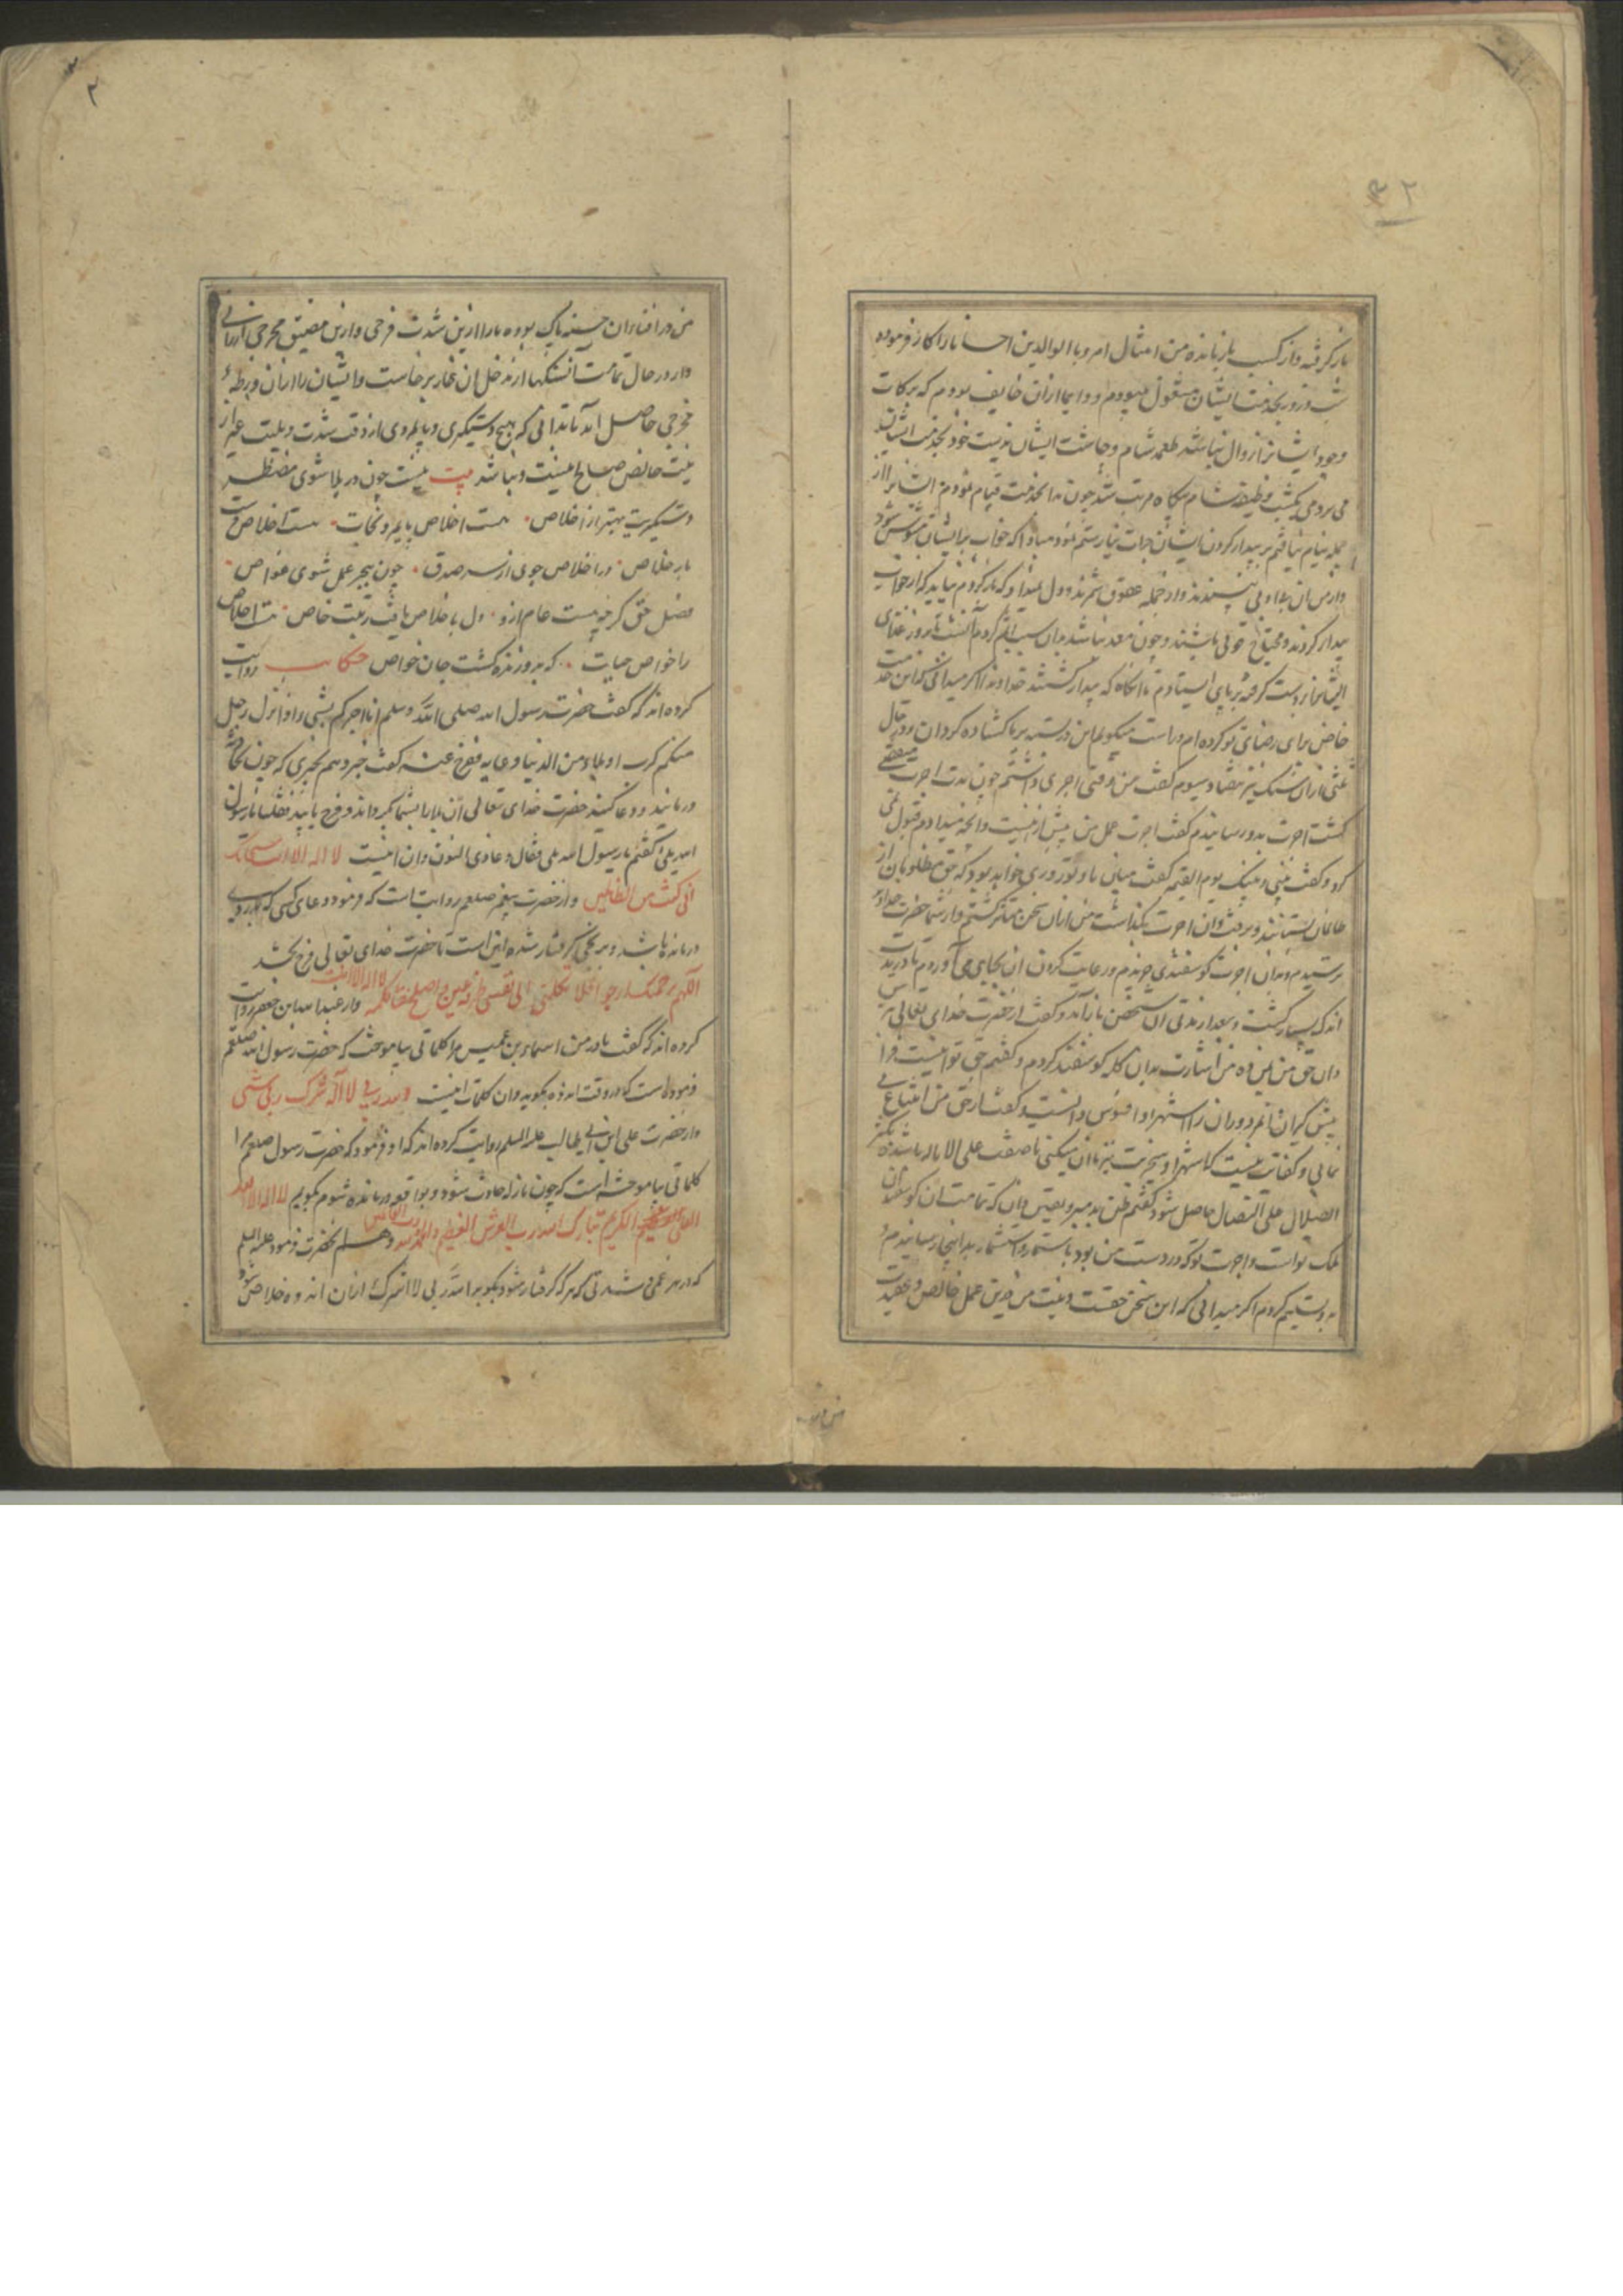 ۳۲
باز گرفته و از کسب باز مانده من امتثال امر و با الوالدین احسانا را کار فرموده
شب و روز بخدمت ایشان مشغول میبودم و دایما از آن خایف بودم که برکات
وجود ایشانرا زوال نباشد طعمه شام و چاشت ایشان بدست خود بخدمت ایشان
می بردمی یکشب وظیفه شام پگاه مرتب شد چون بدانخدمت قیام نمودم ایشانرا از
جمله نیام یافتم بر بیدار کردن ایشان جرات نیارستم نمود مبادا که خواب بر ایشان مشوش شود
و از من آن بی ادبی نپسندند و از جمله عقوق شمرند و دل نمیداد که باز گردم نباید که از خواب
بیدار گردند و محتاج قوتی باشند و چون معد نباشد بدان سبب تا بروز غذای
ایشانرا بر دست گرفته بر پای ایستادم تا آنگاه که بیدار گشتند خداوندا اگر میدانی که این خدمت
خاص برای رضای تو کرده ام و راست میگویم این در بسته بر ما گشاده گردان در حال
ثلثی از آن سنگ نیز بیفتاد سیوم گفت من وقتی اجری داشتم چون مدت اجرت منقضی
گشت اجرت بدو رسانیدم گفت اجرت عمل من بیش ازینست و آنچه میدادم قبول نمی
کرد و گفت بینی و بینک یوم القیمه گفت میان ما و تو روزی خواهد بود که حق مظلومان از
ظالمان بستانند و برفت و آن اجرت بگذاشت من از آن سخن متاثر گشتم و از حضرت خداوند
بترسیدم و بدان اجرت گوسفندی خریدم و رعایت کردن آن بجای می آوردم تا در مدت
اندک بسیار گشت و بعد از مدتی آن شخص باز آمد و گفت از حضرت خدای تعالی بترس
و آن حق من بمن ده من اشارت بدان گله گوسفند کردم و گفتم حق تو اینست فرا
پیش گیر آن را استهزا و افسوس دانست و گفت از حق من امتناع
نمایی و کفایت نیست که استهزا و سخریت نیز با آن میکنی تا ضغث علی الاباله باشد و
الضلال علی الضلال حاصل شود گفتم ظن بد مبر و یقین دان که تمامت آن گوسفندان
ملک تو است و اجرت تو که در دست من بود باستثمار بدانجا رسانیدم و
بدو تسلیم کردم اگر میدانی که این سخن حقست و نیت من درین عمل خالص و عقیدت
من در افتای آن حسنه پاک بوده ما را ازین شدت فرجی و ازین مضیق مخرجی ارزانی
دار در حال تمامت آن سنگها از مدخل آن غار برخاست و ایشان را از آن ورطه
مخرجی حاصل آمد تا بدانی که هیچ دستگیری و پایمردی در وقت شدت و بلیت غیر از
نیت خالص صالح نیست و نباشد بیت نیست چون در بلا شوی مضطر
دستگیریت بهتر از اخلاص هست اخلاص پایمرد نجات
در اخلاص جوی از سر صدق چون ببحر عمل شوی غواص
فضل حق گرچه هست عام ازو دل باخلاص یافت رتبت خاص هست اخلاص
را خواص حیات که بدو زنده گشت جان خواص حکایت روایت
کرده اند که گفت حضرت رسول الله صلی الله وسلم انا اخبرکم بشی اذا نزل رجل
منکم کرب او بلاء من الدنیا و دعا به فرج عنه گفت خبر دهم بچیزی که چون
درمانید و دعا کنید حضرت خدای تعالی آن بلا را از شما بگرداند و فرج یابید
بلی گفتم یا رسول الله بلی فقال دعا ذی النون و آن اینست لا اله الا انت سبحانک
انی کنت من الظالمین و از حضرت پیغمبر صلعم روایت است که فرمود دعای کسی که
درمانده باشد و برنجی گرفتار شده اینست تا حضرت خدای تعالی فرج بخشد
اللهم رحمتک ارجوا فلا تکلنی الی نفسی طرفة عین و اصلح شانی کله لا اله الا انت و از عبد الله ابن جعفر روایت
کرده اند که گفت مادر من اسماء بنت عمیس مرا کلماتی بیاموخت که حضرت رسول الله صلعم
فرموده است که در وقت اندوه بگویند و آن کلمات اینست الله ربی لا اشرک بربی شی
و از حضرت علی ابن ابی طالب علیه السلم روایت کرده اند که او فرمود که حضرت رسول صلعم مرا
کلماتی بیاموخته است که چون نازله حادث شود و بواقعه درمانده شوم بگویم لا اله الا الله
العلی العظیم الکریم تبارک الله رب العرش العظیم والحمد لله رب العالمین و هم آنحضرت فرمود علیه السلم
که در هر غمی و شدتی که هر که گرفتار شود بگوید الله ربی لا اشرک از آن اندوه خلاص شود